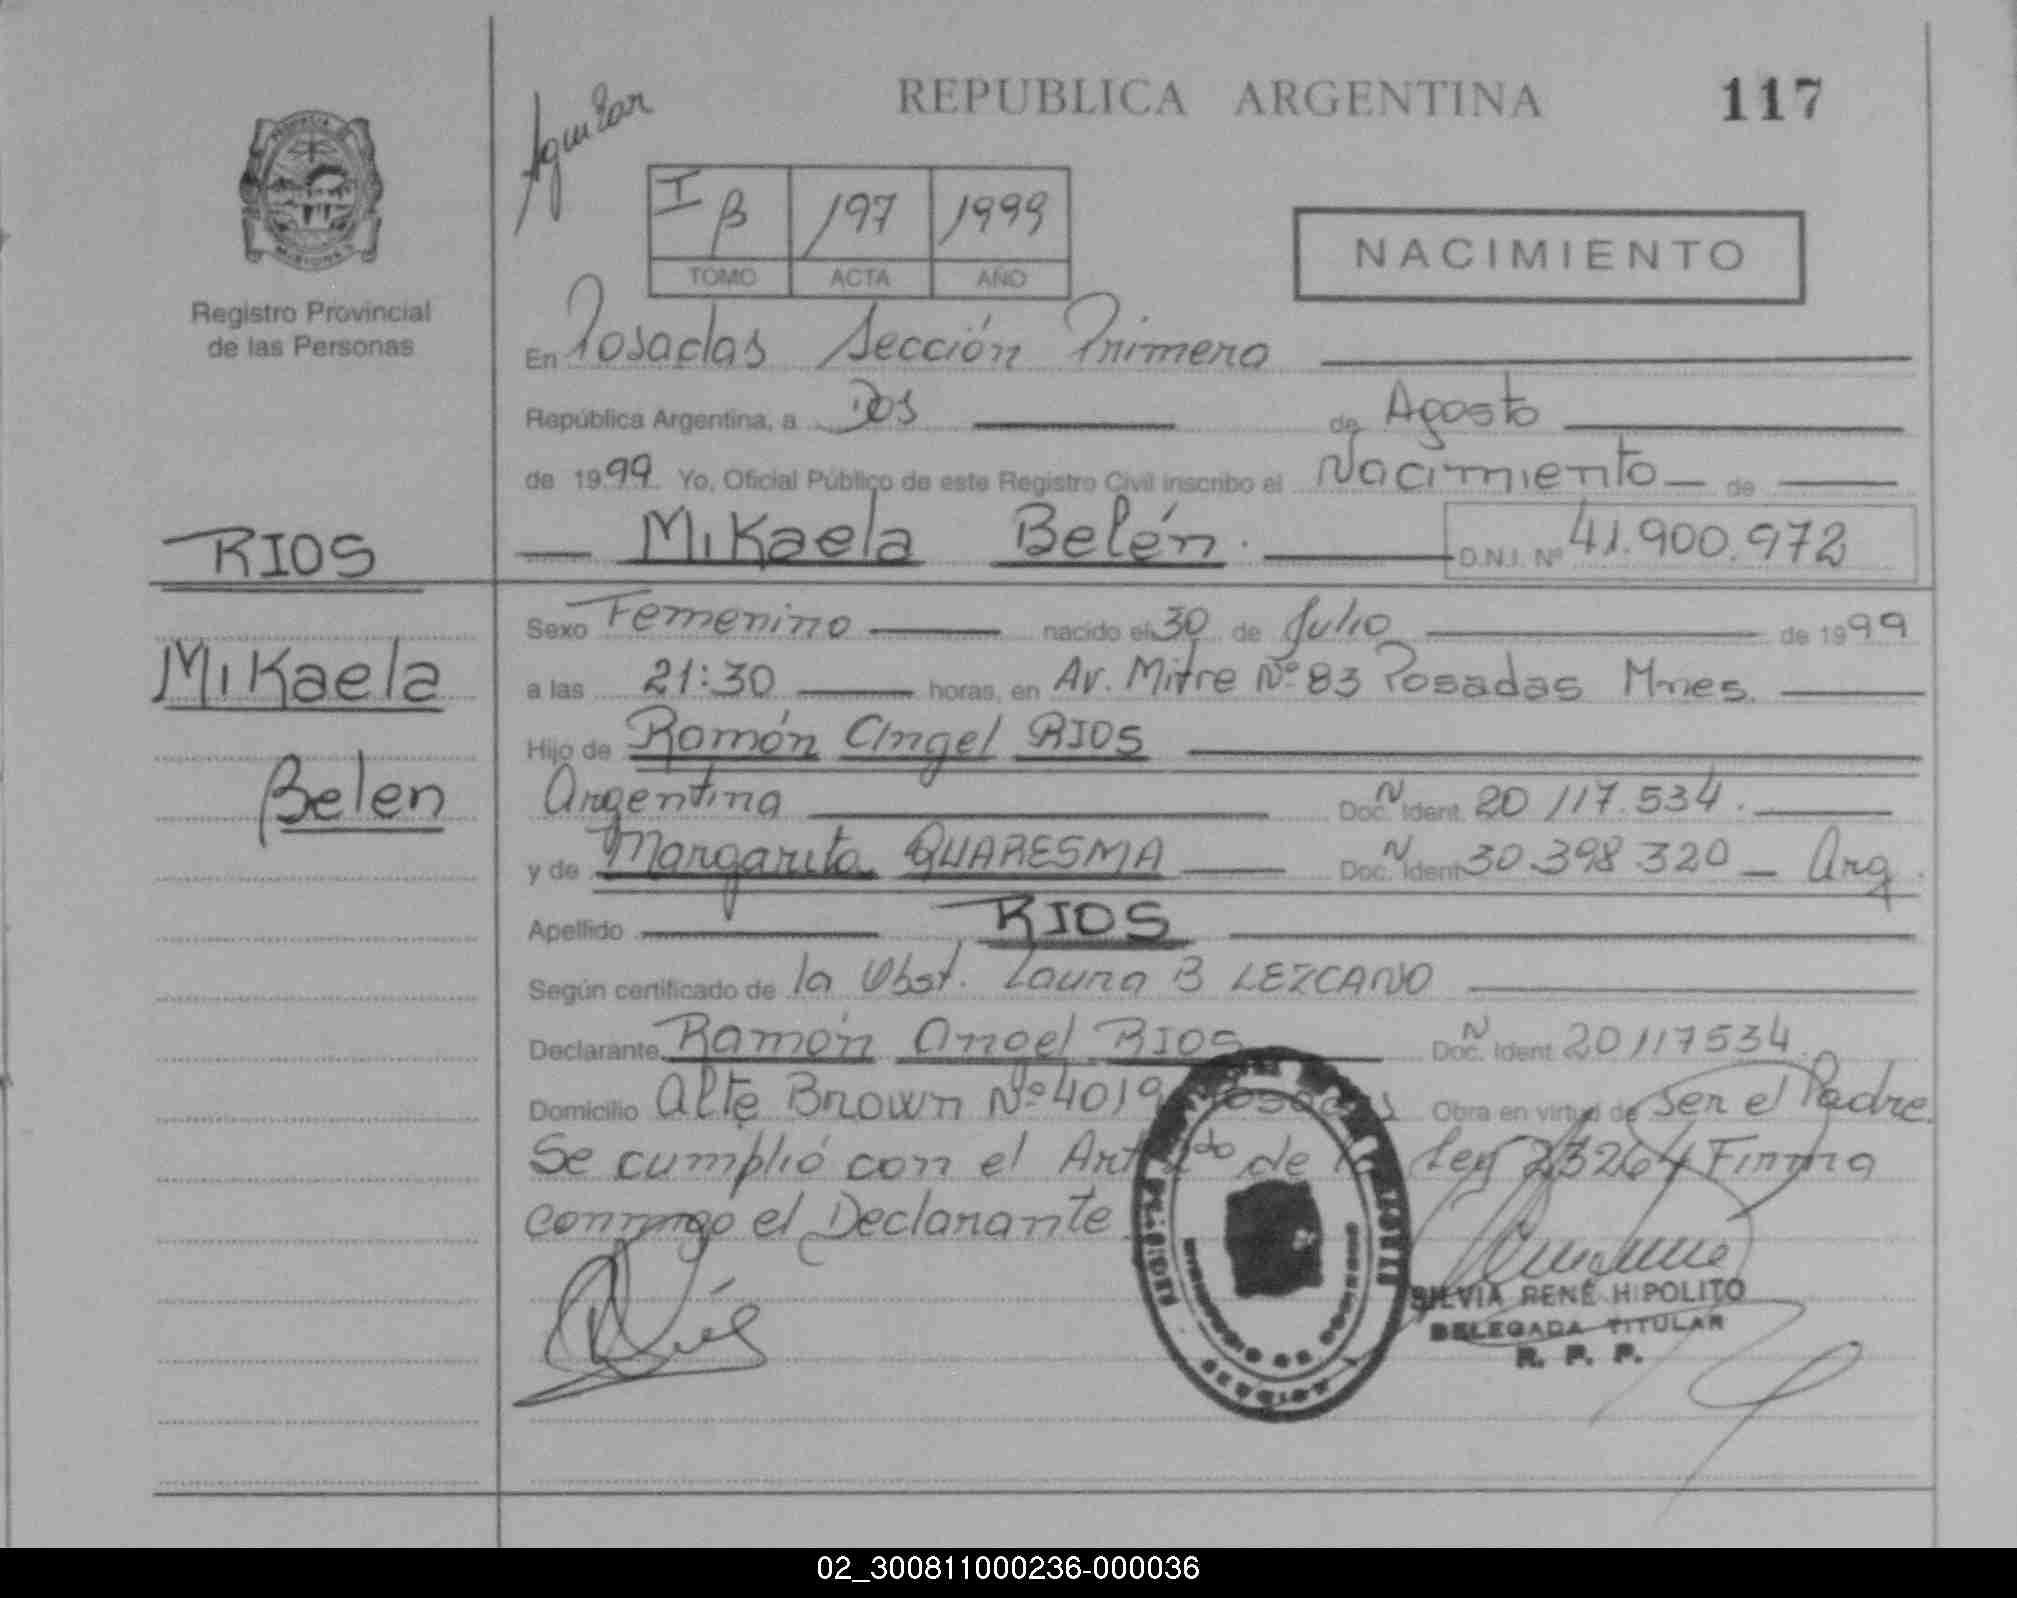 REPUBLICA ARGENTINA 117
Aguilar
I B 197 1999
TOMO ACTA AÑO
NACIMIENTO
Registro Provincial
de las Personas
En Posadas Sección Primera
República Argentina, a Dos de Agosto
de 1999 Yo, Oficial Público de este Registro Civil inscribo el Nacimiento de
Mikaela Belén. D.N.I. Nº 41.900.972
RIOS
Mikaela
Belen
Sexo Femenino nacido el 30 de Julio de 1999
a las 21:30 horas, en Av. Mitre Nº 83 Posadas Mnes.
Hijo de Ramón Angel RIOS
Argentina Doc. N Ident. 20 117.534.
y de Margarita QUARESMA Doc. N Ident 30.398.320 Arg.
Apellido RIOS
Según certificado de la Obst. Laura B LEZCANO
Declarante Ramón Angel RIOS Doc. N Ident 20117534.
Domicilio Alte Brown Nº 4019 Posadas Obra en virtud de Ser el Padre.
Se cumplió con el Art 2do de la Ley 23264 Firma
conmigo el Declarante
SILVIA RENÉ HIPOLITO
DELEGADA TITULAR
R. P. P.
02_300811000236-000036